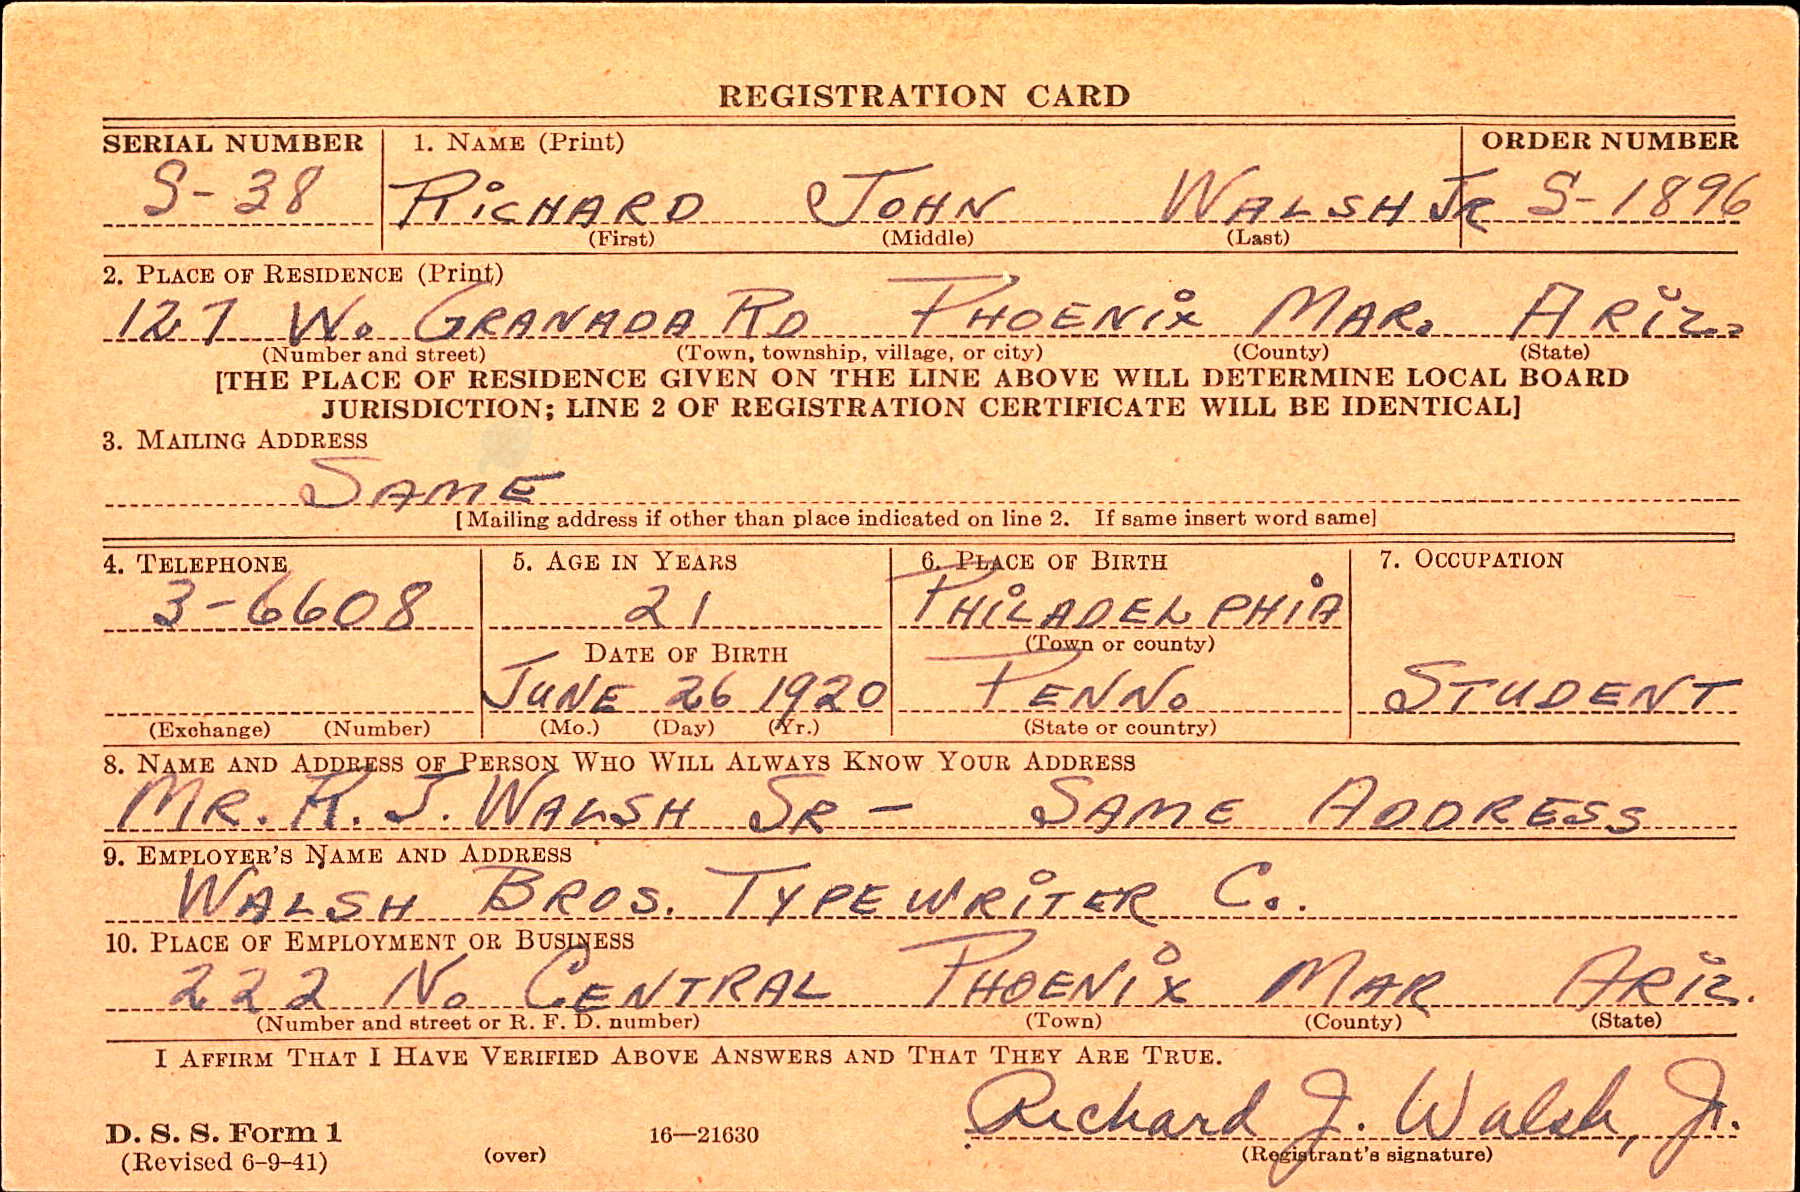 REGISTRATION CARD
SERIAL NUMBER 1. NAME (Print) ORDER NUMBER
S-38 RICHARD JOHN WALSH JR S-1896
(First) (Middle) (Last)
2. PLACE OF RESIDENCE (Print)
127 W. GRANADA RD PHOENIX MAR. ARIZ.
(Number and street) (Town, township, village, or city) (County) (State)
[THE PLACE OF RESIDENCE GIVEN ON THE LINE ABOVE WILL DETERMINE LOCAL BOARD
JURISDICTION; LINE 2 OF REGISTRATION CERTIFICATE WILL BE IDENTICAL]
3. MAILING ADDRESS
SAME
[Mailing address if other than place indicated on line 2. If same insert word same]
4. TELEPHONE 5. AGE IN YEARS 6. PLACE OF BIRTH 7. OCCUPATION
3-6608 21 PHILADELPHIA
DATE OF BIRTH (Town or county)
JUNE 26 1920 PENN. STUDENT
(Exchange) (Number) (Mo.) (Day) (Yr.) (State or country)
8. NAME AND ADDRESS OF PERSON WHO WILL ALWAYS KNOW YOUR ADDRESS
MR. R. J. WALSH SR - SAME ADDRESS
9. EMPLOYER'S NAME AND ADDRESS
WALSH BROS. TYPEWRITER Co.
10. PLACE OF EMPLOYMENT OR BUSINESS
222 No CENTRAL PHOENIX MAR ARIZ.
(Number and street or R. F. D. number) (Town) (County) (State)
I AFFIRM THAT I HAVE VERIFIED ABOVE ANSWERS AND THAT THEY ARE TRUE.
Richard J. Walsh, Jr.
D. S. S. Form 1
(Revised 6-9-41) (over) 16—21630 (Registrant's signature)